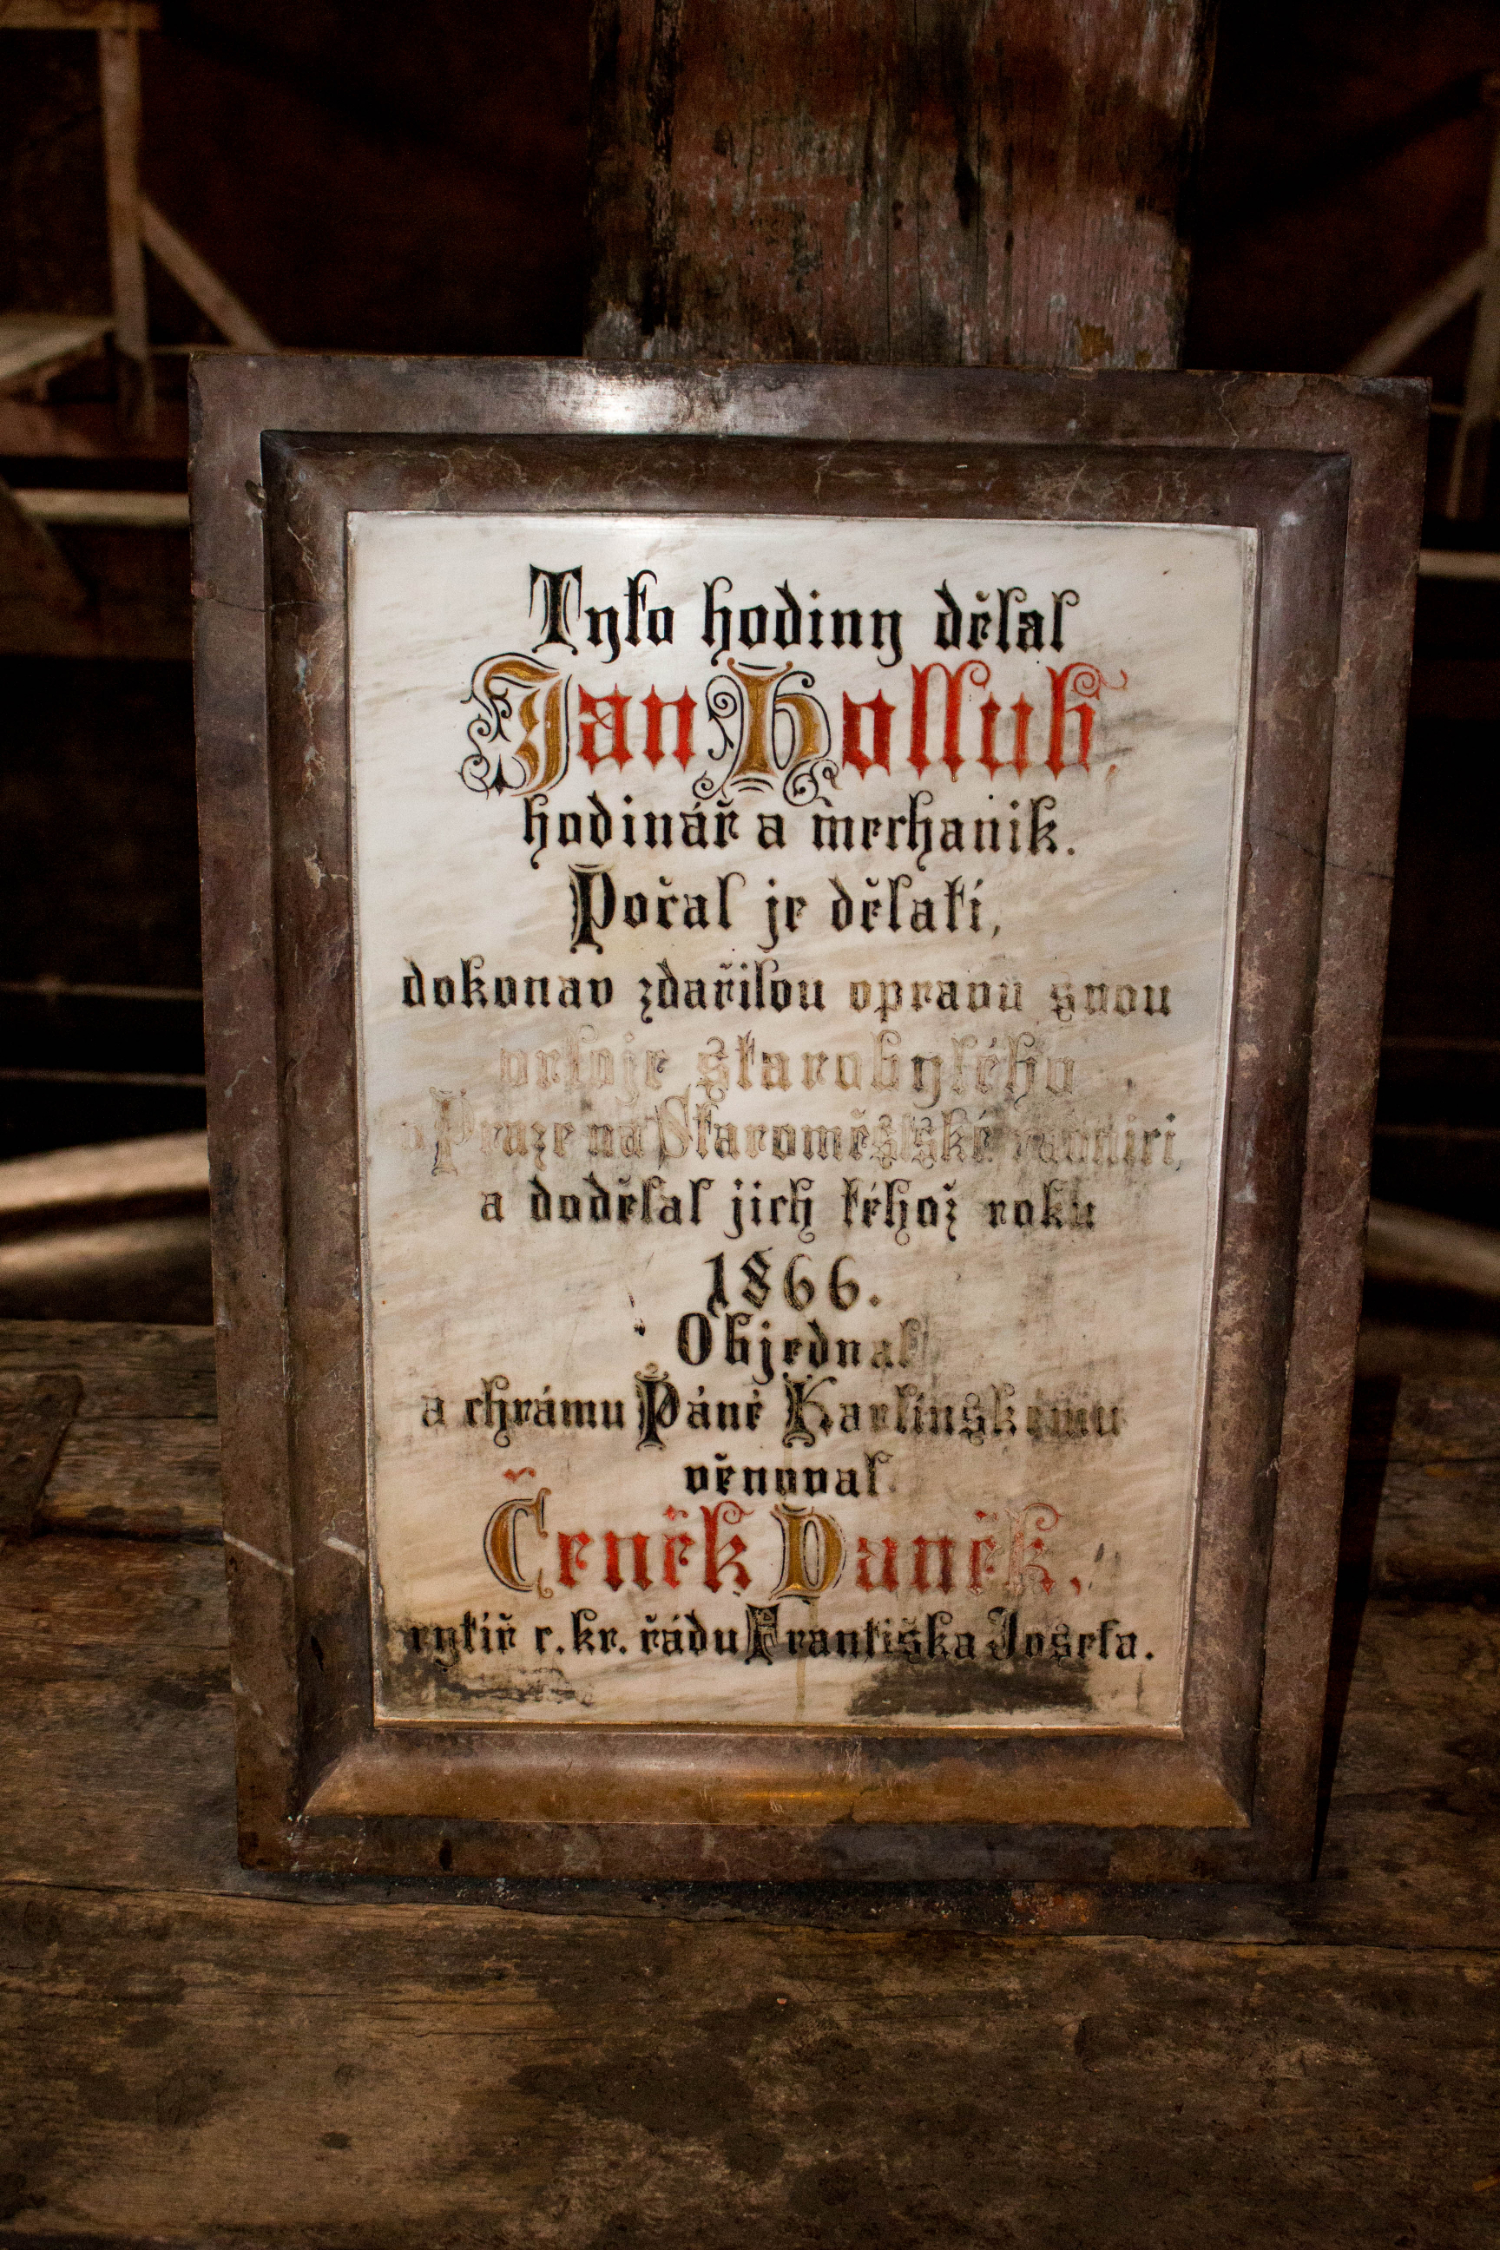 Tyto hodiny dělal
Jan Hollub,
hodinář a mechanik.
Počal je dělati,
dokonav zdařilou opravu svou
orloje starobylého
v Praze na Staroměstské radnici,
a dodělal jich téhož roku
1866.
Objednal
a chrámu Páně Karlínskému
věnoval
Čeněk Daněk,
rytíř c. kr. řádu Františka Josefa.